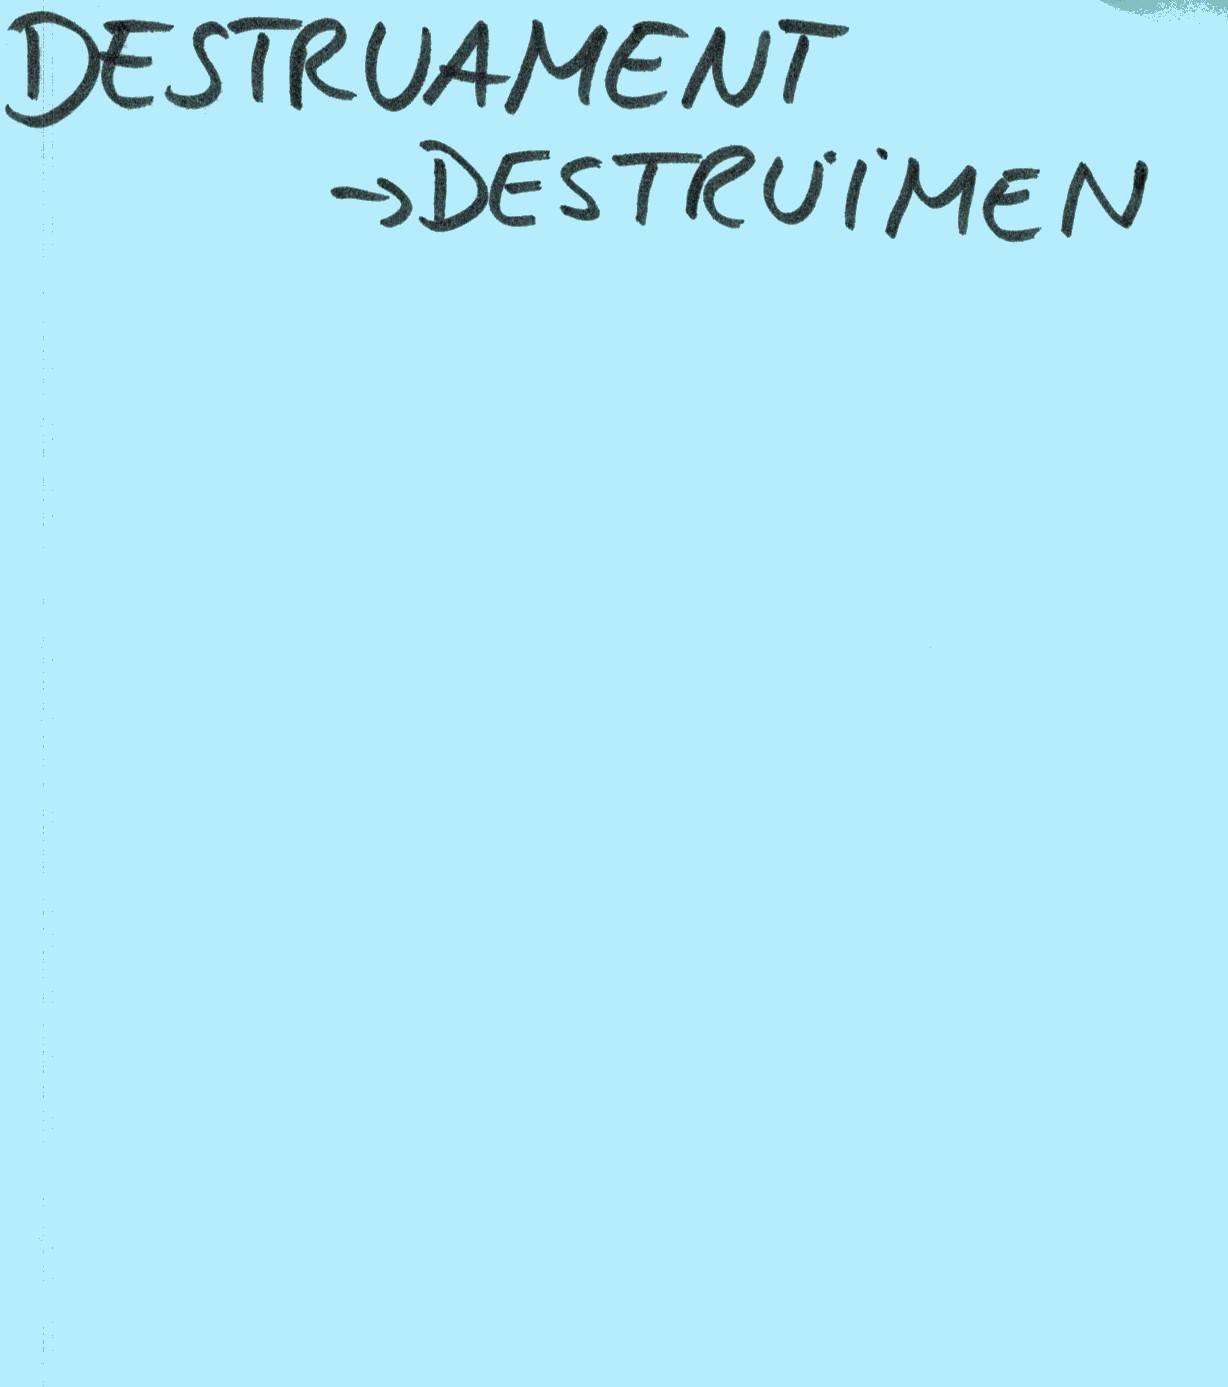 DESTRUAMENT
→DESTRUÏMEN